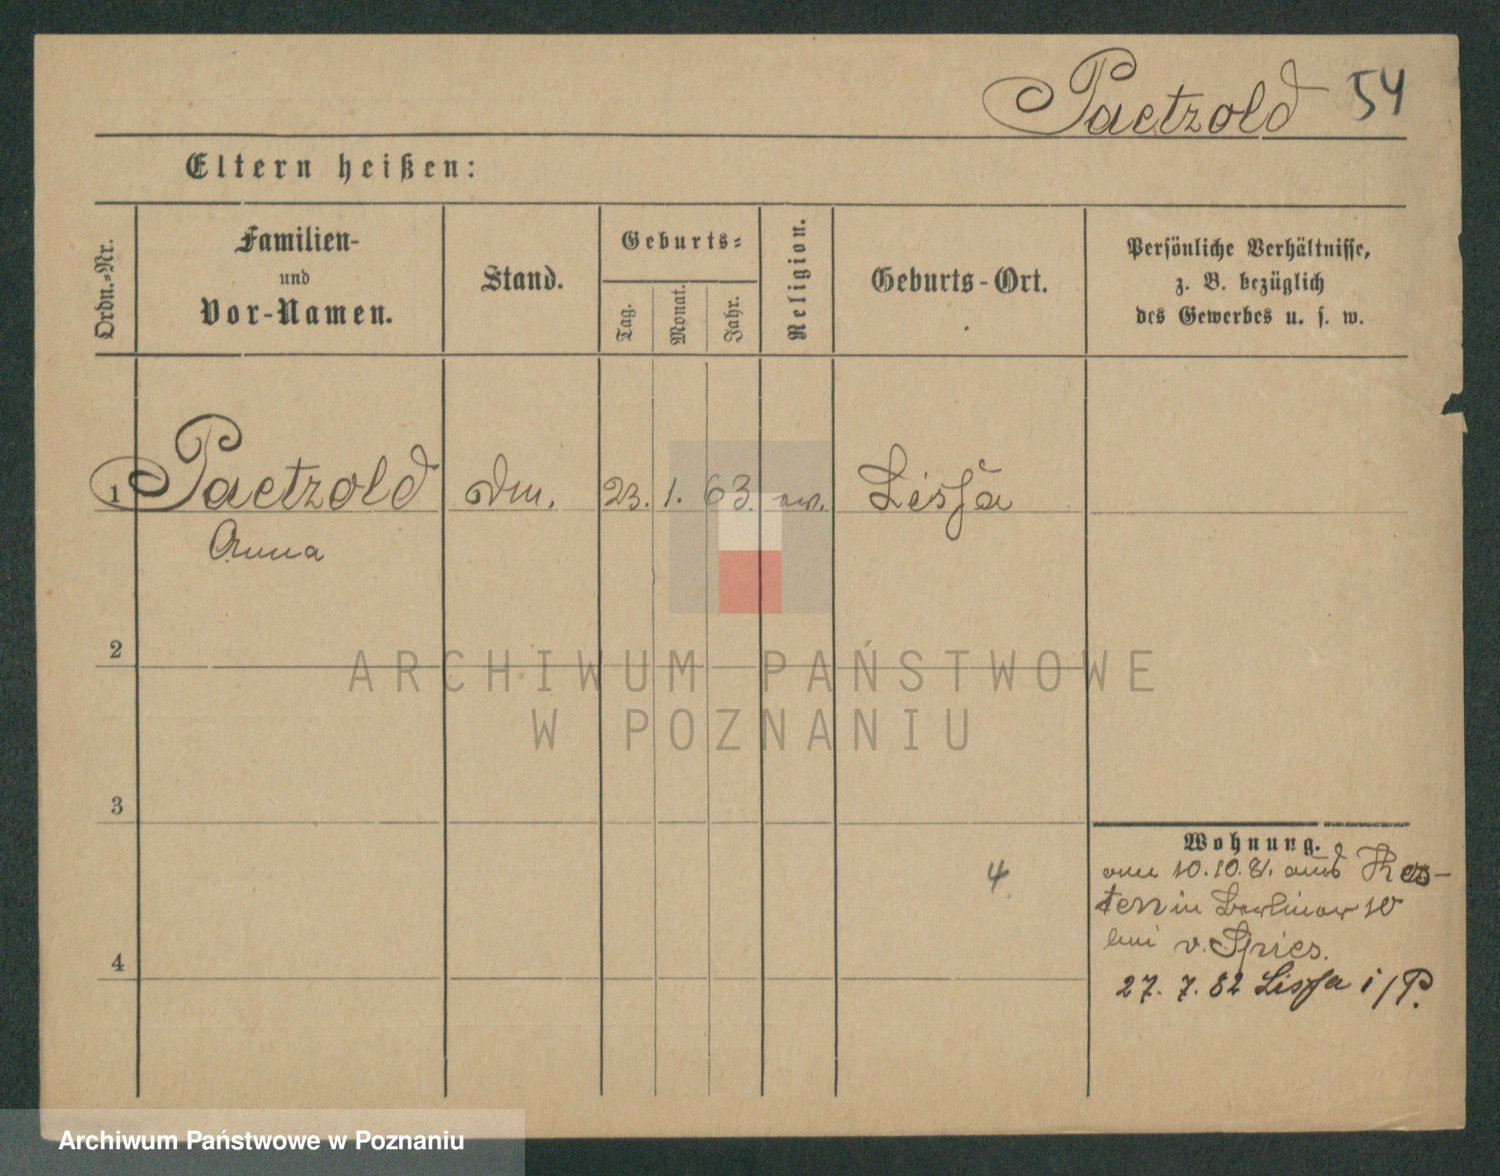 Paetzold 54
Eltern heißen:
Ordn.-Nr.
Familien-
und
Vor-Namen.
Stand.
Geburts-
Tag.
Monat.
Jahr.
Religion.
Geburts-Ort.
Persönliche Verhältnisse,
z. B. bezüglich
des Gewerbes u. s. w.
1 Paetzold 23. 1. 63. Lissa
Anna
2
ARCHIWUM PAŃSTWOWE
W POZNANIU
3
Wohnung.
10.10.81. aus
4
in Berliner 10
bei v. Spies.
4
27. 7. 82 Lissa i/P.
Archiwum Państwowe w Poznaniu